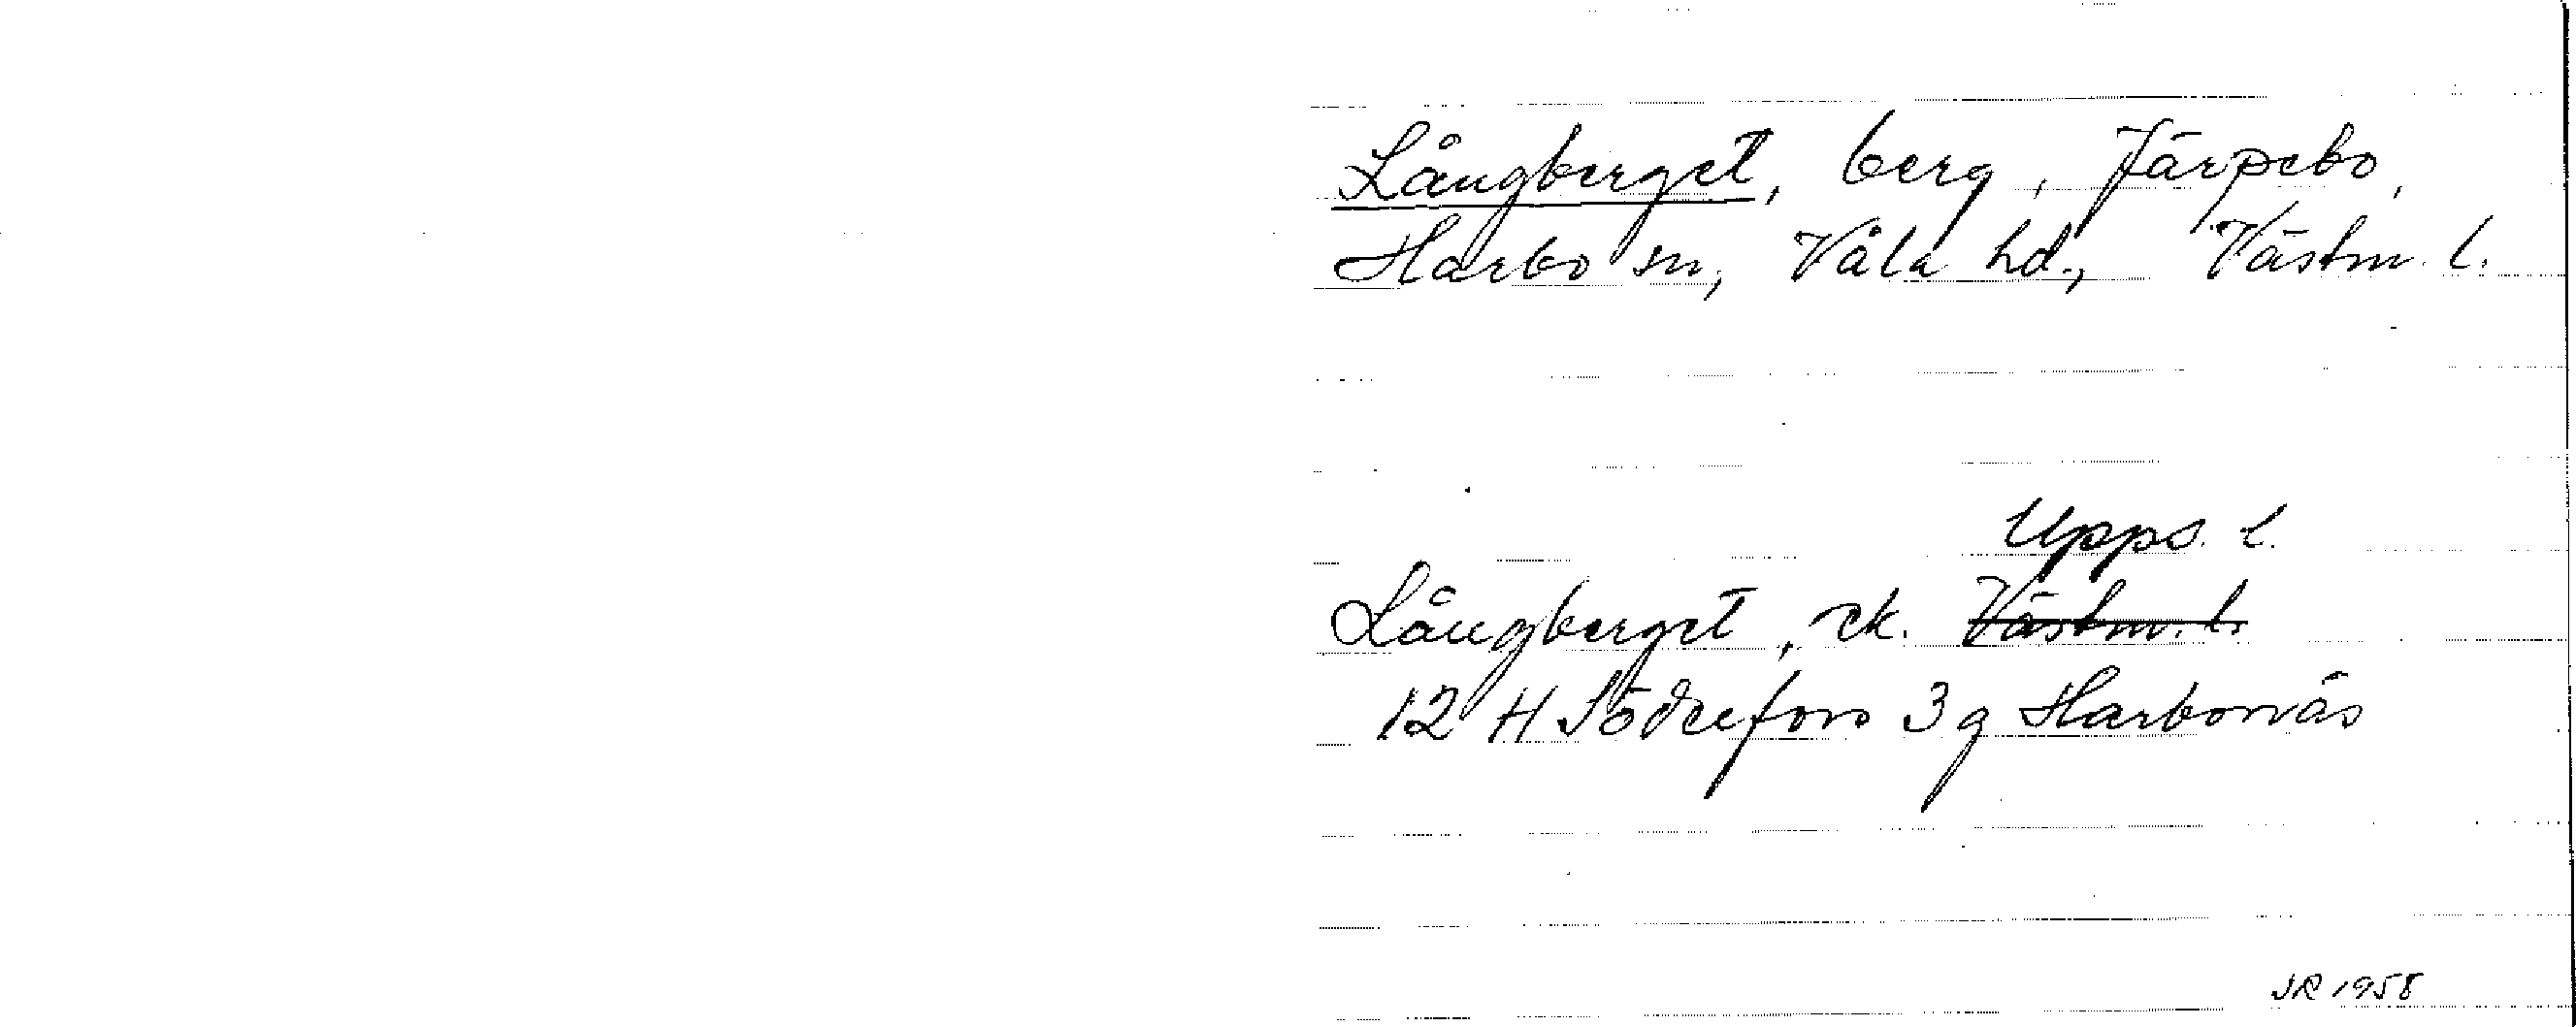 Långberget, berg, Järpebo,
Harbo sn, Våla hd., Västm. l.
Upps. l.
Långberget, ek. Västm. l.
12 H Söderfors 3 g Harbonäs
JR 1958